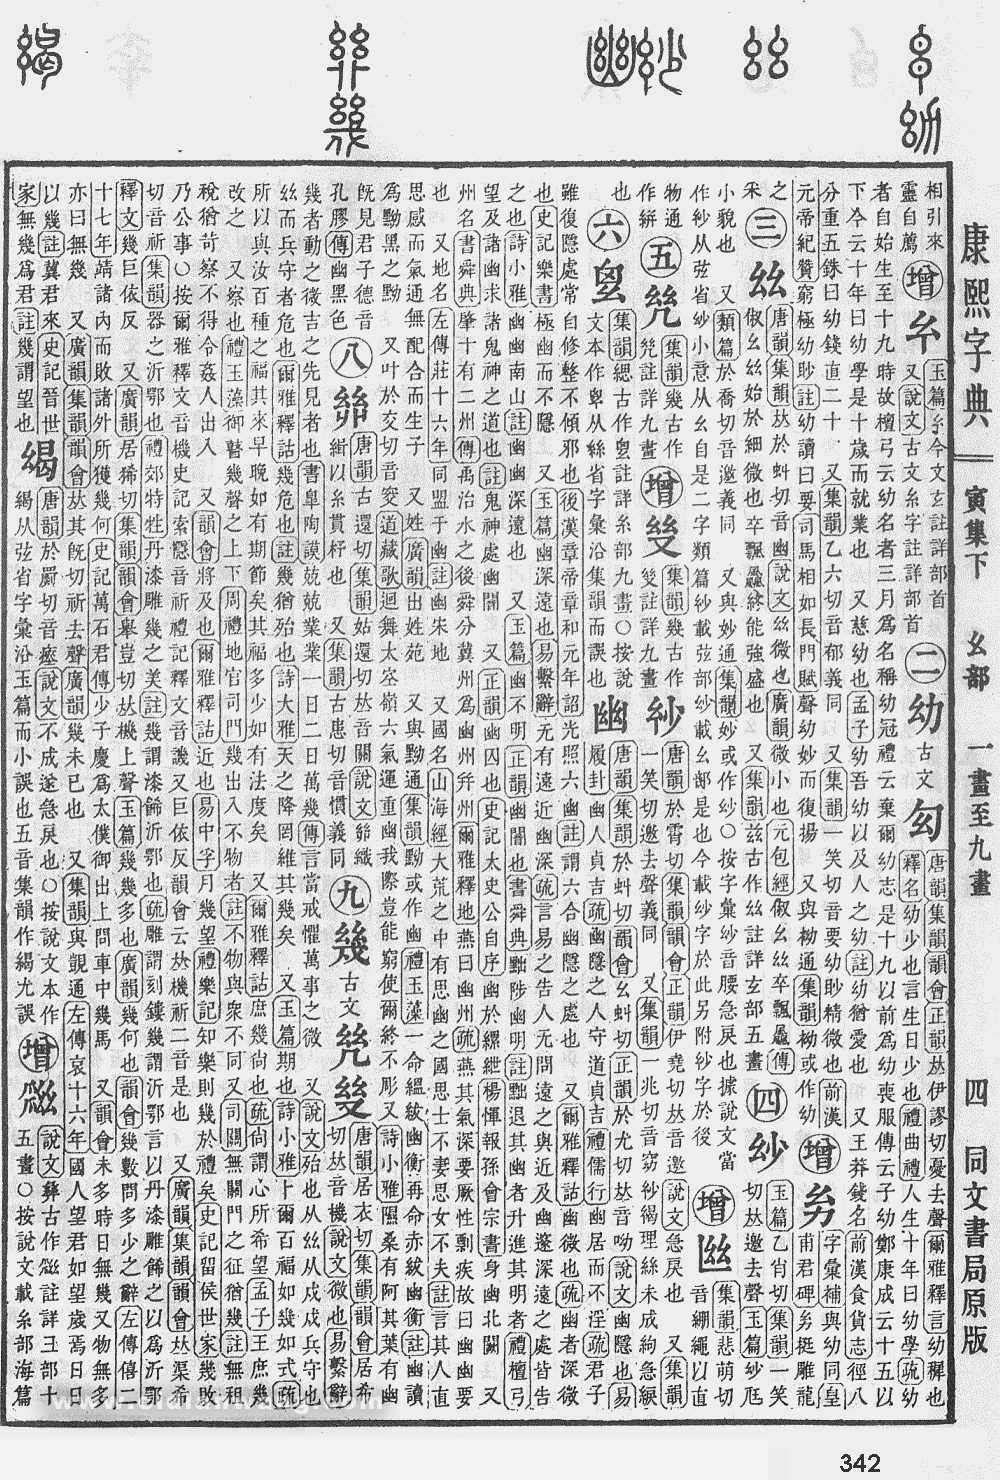 康熙字典 寅集下 幺部 一畫至九畫 四 同文書局原版
相引來
靈自薦
增
玉篇今文玄註詳部首
又說文古文糸字註詳部首
二
幼
古文
唐韻集韻韻會正韻𠀤伊謬切憂去聲爾雅釋言幼穉也
釋名幼少也言生日少也禮曲禮人生十年曰幼學疏幼
者自始生至十九時故檀弓云幼名者三月爲名稱幼冠禮云棄爾幼志是十九以前爲幼喪服傳云子幼鄭康成云十五以
下今云十年曰幼學是十歲而就業也 又慈幼也孟子幼吾幼以及人之幼註幼猶愛也 又王莽錢名前漢食貨志徑八
分重五銖曰幼錢直二十 又集韻乙六切音郁義同 又集韻一笑切音要幼眇精微也前漢
元帝紀贊窮極幼眇註幼讀曰要司馬相如長門賦聲幼妙而復揚 又與㓜通集韻㓜或作幼
增
字彙補與幼同皇
甫君碑挺雕龍
之
采
三
𢆶
唐韻集韻𠀤於虯切音幽說文𢆶微也廣韻微小也元包經傲幺𢆶卒飄驫傳
傲幺𢆶始於細微也卒飄驫終能強盛也 又集韻茲古作𢆶註詳玄部五畫
四
玉篇乙肖切集韻一笑
切𠀤邀去聲玉篇尪
小貌也 又類篇於喬切音邀義同 又與妙通集韻妙或作○按字彙音腰急戾也據說文當
作从弦省少意从幺自是二字類篇載弦部載幺部是也今載字於此另附字於後
增
集韻悲萌切
音綳繩以直
物通
作絣
五
集韻幾古作
註詳九畫
增
集韻幾古作
註詳九畫
唐韻於霄切集韻韻會正韻伊堯切𠀤音邀說文急戾也 又集韻
一笑切邀去聲義同 又集韻一兆切音窈紗褐理絲未成絇急緱
也
六
集韻緦古作註詳糸部九畫○按說
文本作从絲省字彙沿集韻而誤也
幽
唐韻集韻於虯切韻會幺虯切正韻於尤切𠀤音呦說文幽隱也易
履卦幽人貞吉疏幽隱之人守道貞吉禮儒行幽居而不淫疏君子
雖復隱處常自修整不傾邪也後漢章帝章和元年詔光照六幽註謂六合幽隱之處也 又爾雅釋詁幽微也疏幽者深微
也史記樂書極幽而不隱 又玉篇幽深遠也易繫辭无有遠近幽深疏言易之告人无問遠之與近及幽邃深遠之處皆告
之也詩小雅幽幽南山註幽幽深遠也 又玉篇幽不明正韻幽闇也書舜典黜陟幽明註黜退其幽者升進其明者禮檀弓
望及諸幽求諸鬼神之道也註鬼神處幽闇 又正韻幽囚也史記太史公自序幽於縲紲楊惲報孫會宗書身幽北闕 又
州名書舜典肇十有二州傳禹治水之後舜分冀州爲幽州幷州爾雅釋地燕曰幽州疏燕其氣深要厥性剽疾故曰幽幽要
也 又地名左傳莊十六年同盟于幽註幽宋地 又國名山海經大荒之中有思幽之國思士不妻思女不夫註言其人直
思感而氣通無配合而生子 又姓廣韻出姓苑 又與黝通集韻黝或作幽禮玉藻一命縕紱幽衡再命赤紱幽衡註幽讀
爲黝黑之黝 又叶於交切音窔道藏歌迴舞太空嶺六氣運重幽我際豈能窮使爾終不彫 又詩小雅隰桑有阿其葉有幽
旣見君子德音
孔膠傳幽黑色
八
唐韻古還切集韻姑還切𠀤音關說文織
緝以糸貫杼也 又集韻古患切音慣義同
九
幾
古文
唐韻居衣切集韻韻會居希
切𠀤音機說文微也易繫辭
幾者動之微吉之先見者也書臯陶謨兢兢業業一日二日萬幾傳言當戒懼萬事之微 又說文殆也从𢆶从戍戍兵守也
𢆶而兵守者危也爾雅釋詁幾危也註幾猶殆也詩大雅天之降罔維其幾矣 又玉篇期也詩小雅卜爾百福如幾如式疏
所以與汝百種之福其來早晚如有期節矣其福多少如有法度矣 又爾雅釋詁庶幾尙也疏尙謂心所希望孟子王庶幾
改之 又察也禮玉藻御瞽幾聲之上下周禮地官司門幾出入不物者註不物與衆不同又司關無關門之征猶幾註無租
稅猶苛察不得令姦人出入 又韻會將及也爾雅釋詁近也易中孚月幾望禮樂記知樂則幾於禮矣史記留侯世家幾敗
乃公事○按爾雅釋文音機史記索隱音祈禮記釋文音譏又巨依反韻會云𠀤機祈二音是也 又廣韻集韻韻會𠀤渠希
切音祈集韻器之沂鄂也禮郊特牲丹漆雕幾之美註幾謂漆飾沂鄂也疏雕謂刻鏤幾謂沂鄂言以丹漆雕飾之以爲沂鄂
釋文幾巨依反 又廣韻居狶切集韻韻會舉豈切𠀤機上聲玉篇幾幾多也廣韻幾何也韻會幾數問多少之辭左傳僖二
十七年靖諸內而敗諸外所獲幾何史記萬石君傳少子慶爲太僕御出上問車中幾馬 又韻會未多時日無幾又物無多
亦曰無幾 又廣韻集韻韻會𠀤其旣切祈去聲廣韻幾未已也 又集韻與覬通左傳哀十六年國人望君如望歲焉日日
以幾註冀君來史記晉世
家無幾爲君註幾謂望也
唐韻於罽切音瘞說文不成遂急戾也○按說文本作
从弦省字彙沿玉篇而小誤也五音集韻作尤誤
增
說文古作註詳彑部十
五畫○按說文載糸部海篇
342